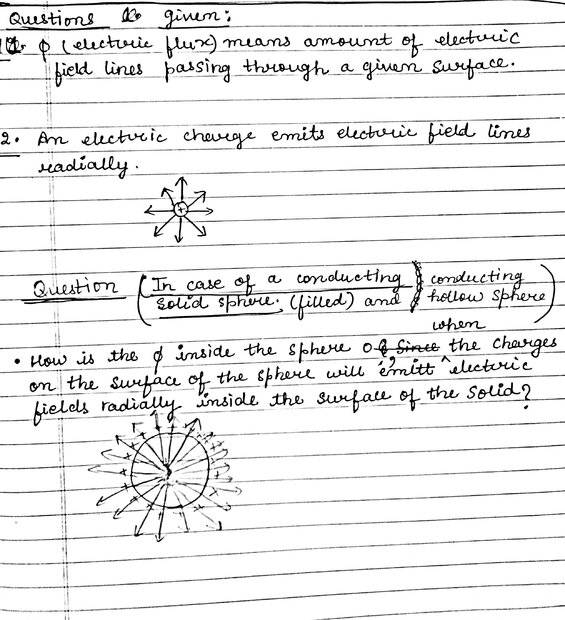 Questions given:
1. φ (electric flux) means amount of electric
field lines passing through a given surface.
2. An electric charge emits electric field lines
radially.
+
Question (In case of a conducting } conducting
solid sphere. (filled) and } hollow sphere)
when
• How is the φ inside the sphere 0 if since the charges
on the surface of the sphere will emitt ^ electric
fields radially inside the surface of the solid?